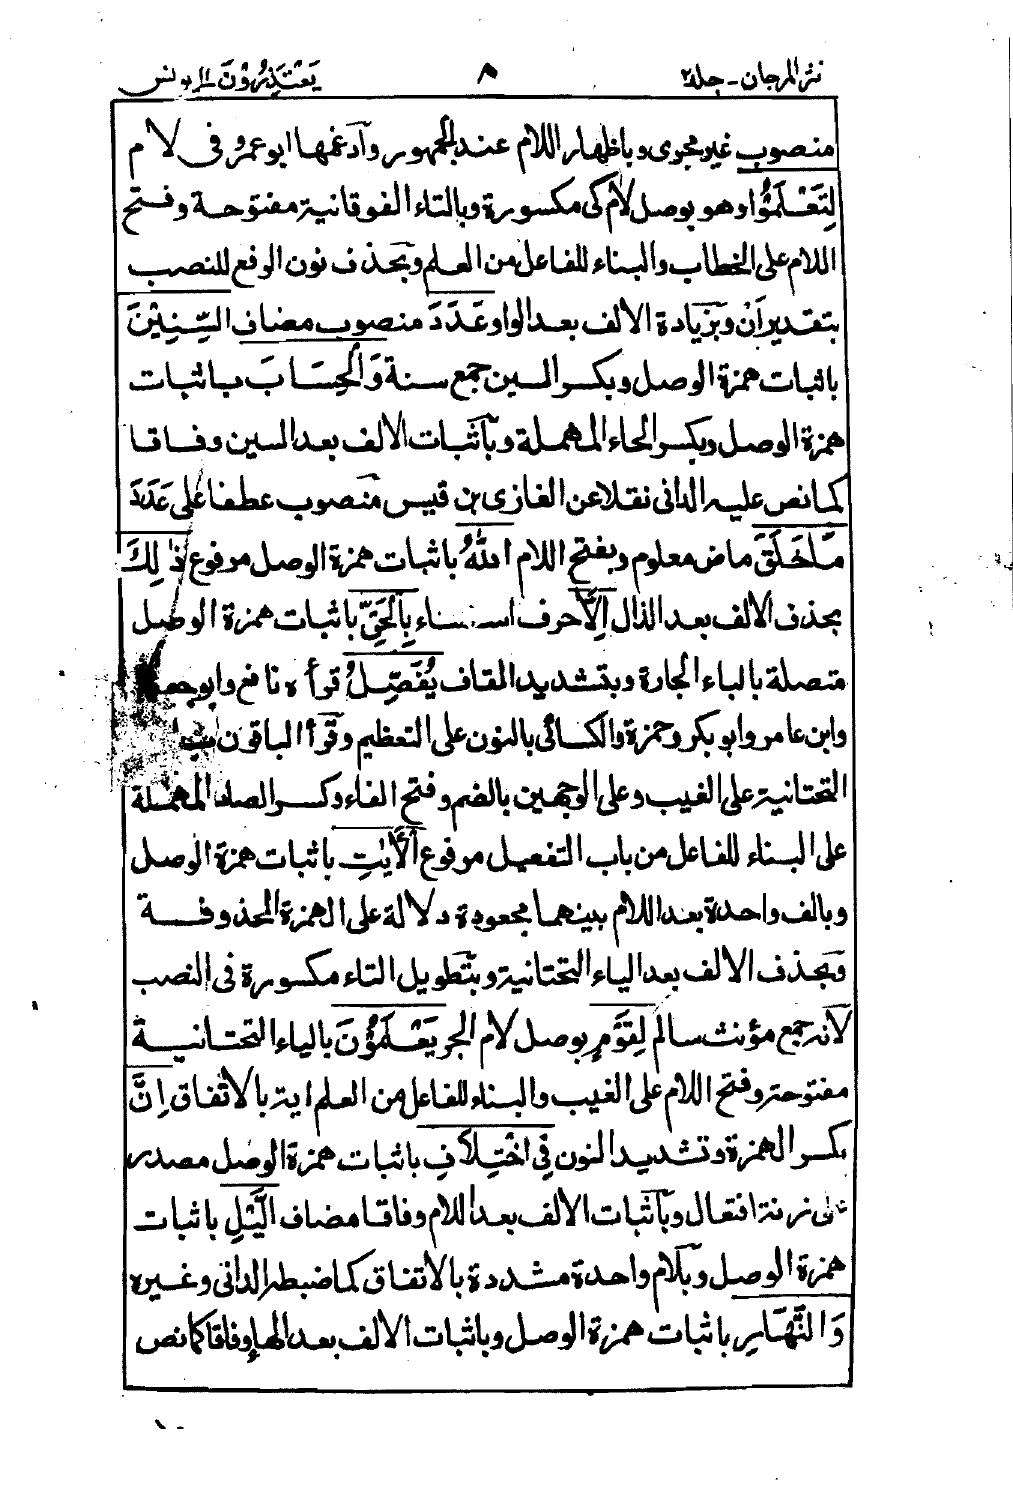 نثر المرجان - جلد٢ ٨ يَعْتَذِرُوْنَ ١١ يونس
منصوب غير مجرى وباظهار اللام عند الجمهور وادغمها ابو عمرو فى لام
لِتَعْلَمُوْا وهو بوصل لام كى مكسورة وبالتاء الفوقانية مفتوحة وفتح
اللام على الخطاب والبناء للفاعل من العلم وبحذف نون الرفع للنصب
بتقدير اَنْ وبزيادة الالف بعد الواو عَدَدَ منصوب مضاف السِّنِيْنَ
باثبات همزة الوصل وبكسر السين جمع سنة وَالْحِسَابَ باثبات
همزة الوصل وبكسر الحاء المهملة وباثبات الالف بعد السين وفاقا
كما نص عليه الدانى نقلا عن الغازى بن قيس منصوب عطفا على عَدَدَ
مَا خَلَقَ ماض معلوم وبفتح اللام اللّٰهُ باثبات همزة الوصل مرفوع ذٰلِكَ
بحذف الالف بعد الذال اِلَّا حرف استثناء بِالْحَقِّ باثبات همزة الوصل
متصلة بالباء الجارة وبتشديد القاف يُفَصِّلُ قرأه نافع وابو جعفر
وابن عامر وابو بكر وحمزة والكسائى بالنون على التعظيم وقرأ الباقون بـ
التحتانية على الغيب وعلى الوجهين بالضم وفتح الفاء وكسر الصاد المهملة
على البناء للفاعل من باب التفعيل مرفوع الْاٰيٰتِ باثبات همزة الوصل
وبالف واحدة بعد اللام بينهما مجعودة دلالة على الهمزة المحذوفة
وبحذف الالف بعد الياء التحتانية وبتطويل التاء مكسورة فى النصب
لانه جمع مؤنث سالم لِقَوْمٍ بوصل لام الجر يَعْلَمُوْنَ بالياء التحتانية
مفتوحة وفتح اللام على الغيب والبناء للفاعل من العلم اية بالاتفاق اِنَّ
بكسر الهمزة وتشديد النون فِى اخْتِلَافِ باثبات همزة الوصل مصدر
على زنة افتعال وباثبات الالف بعد اللام وفاقا مضاف الَّيْلِ باثبات
همزة الوصل وبلام واحدة مشددة بالاتفاق كما ضبطه الدانى وغيره
وَالنَّهَارِ باثبات همزة الوصل وباثبات الالف بعد الهاء وفاقا كما نص